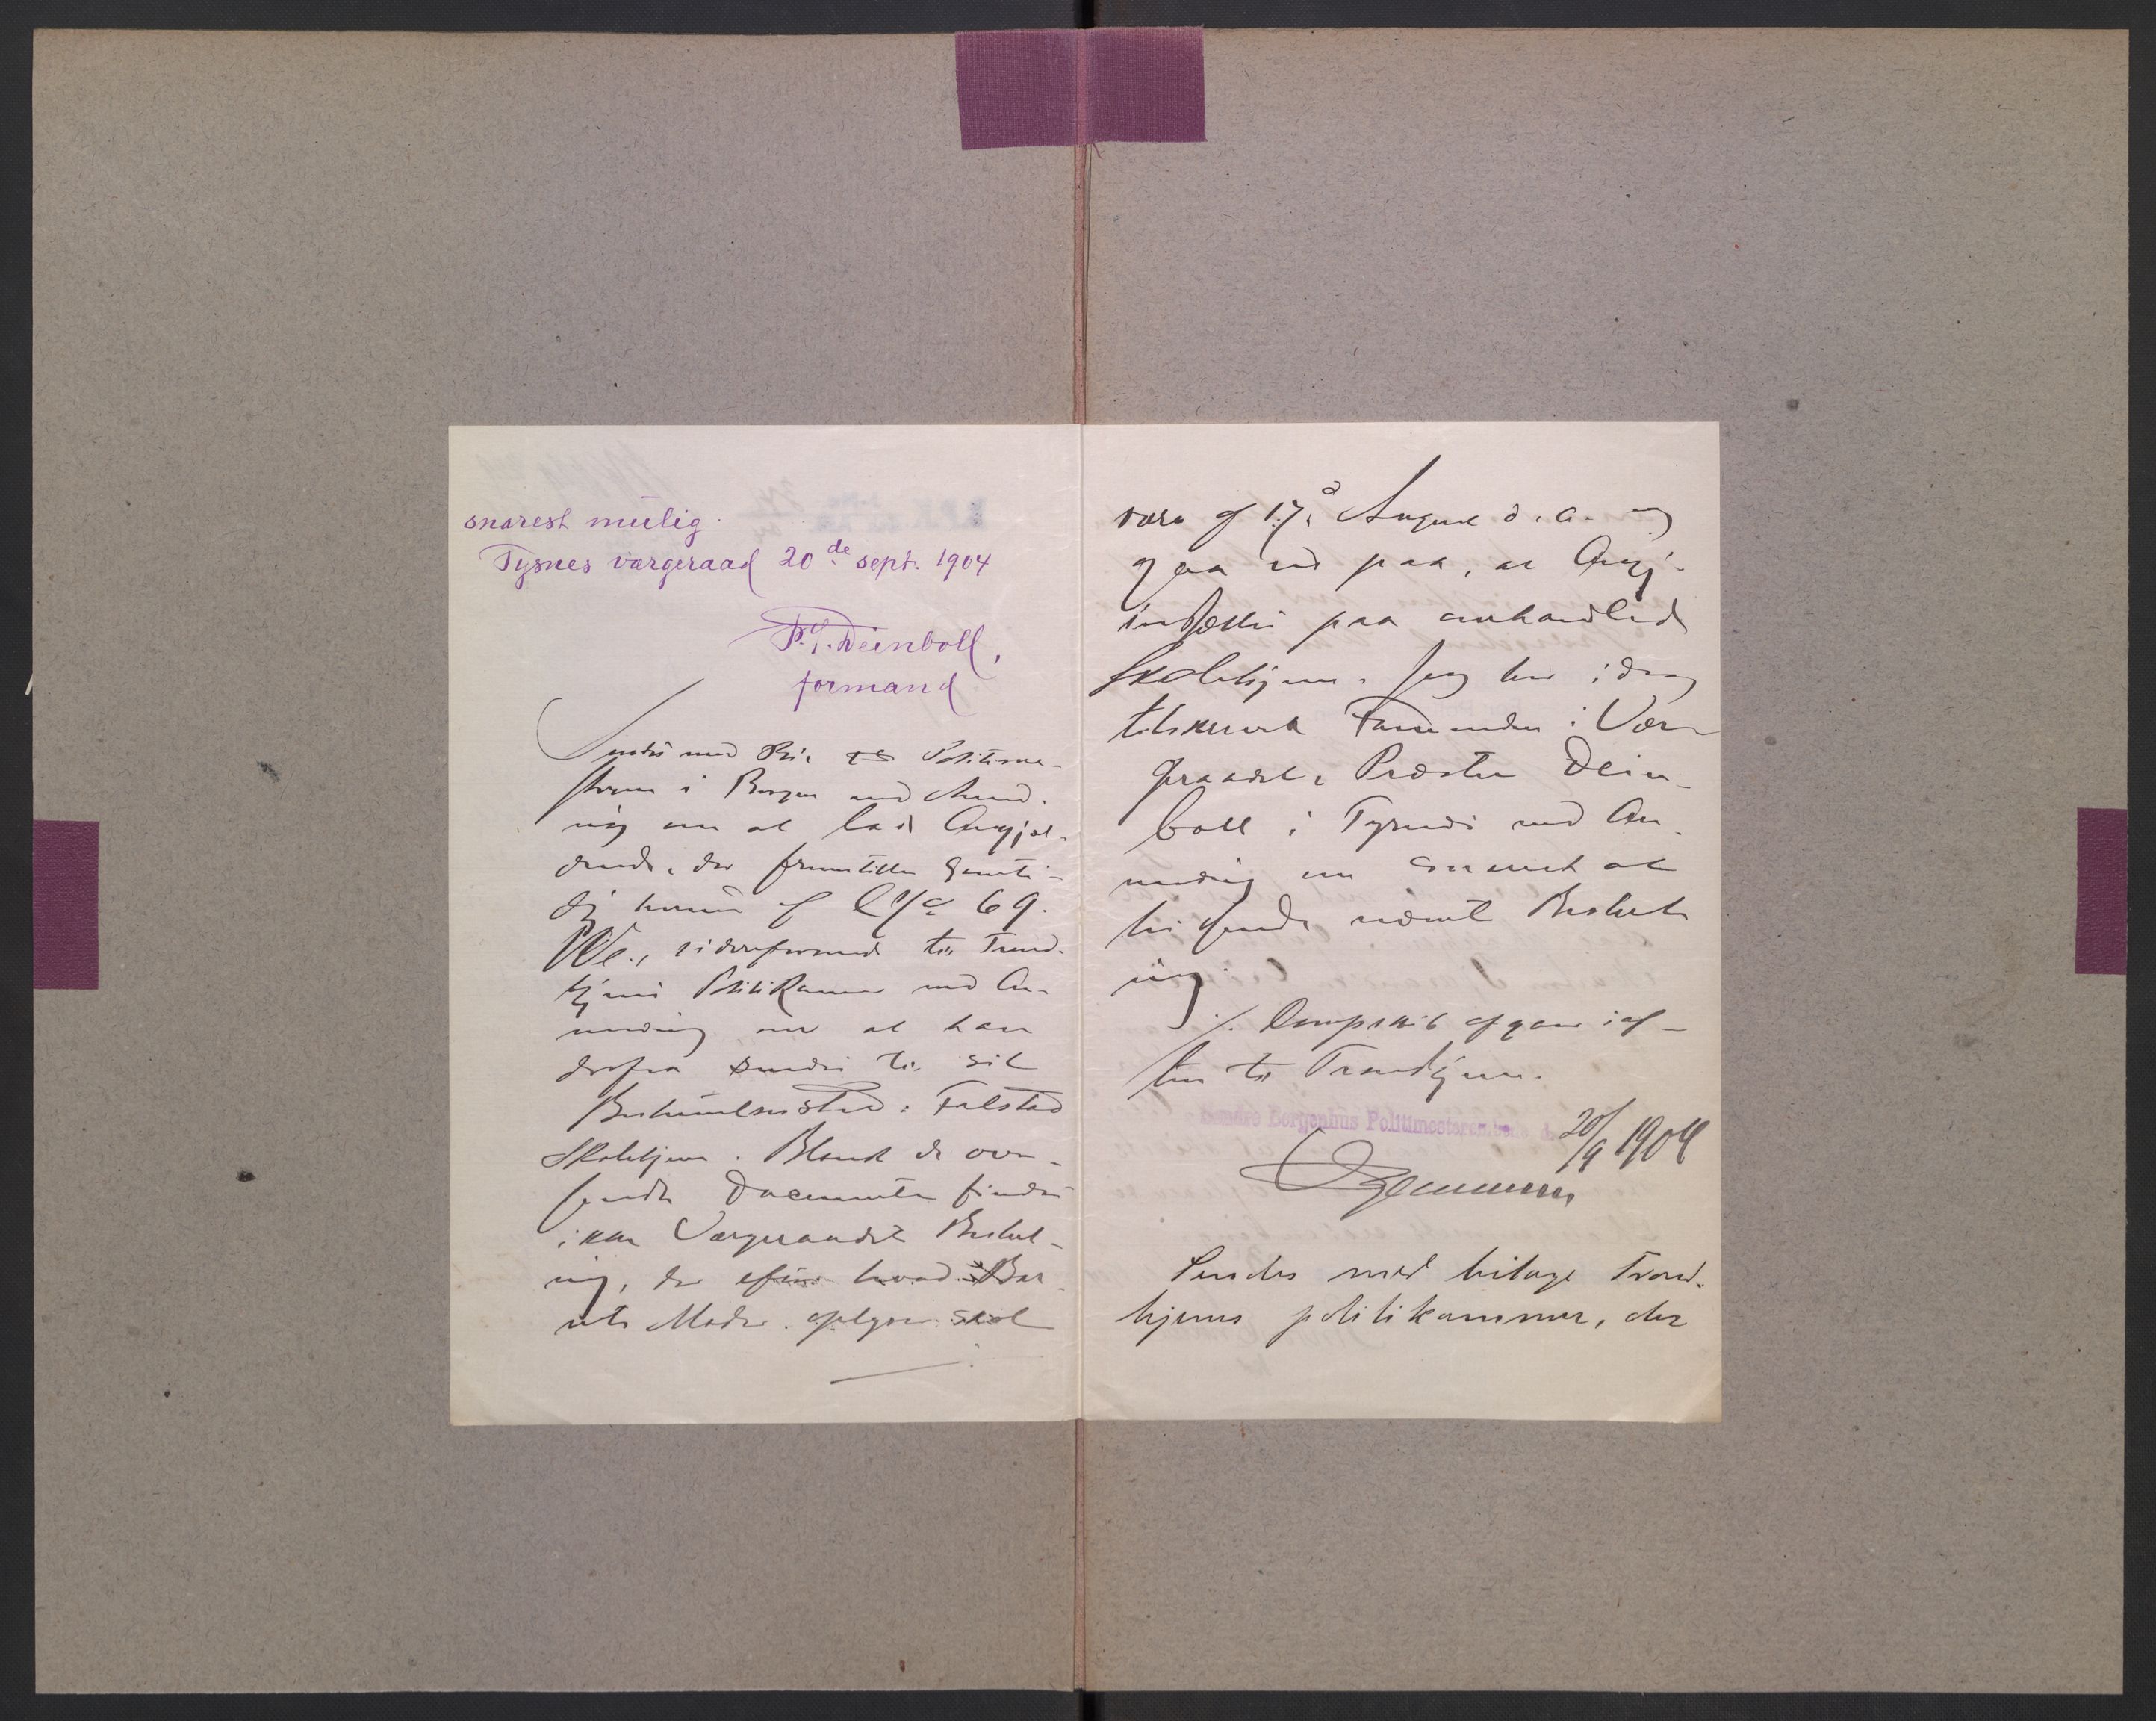 snarest mulig.
Tysnes værgeraad 20de sept. 1904
P. Deinboll,
formand
Sendes med Bil. Politime-
steren i Bergen med Anmod-
ning om at lade Angjæl-
dende, der fremstilles samti-
dig hermed af
videreforsendt til Trond-
hjems Politikammer med An-
modning om at han
derfra sendes til sit
Bestemmelsessted: Falstad
Skolehjem. Blandt de over-
sendte Documenter findes
ikke Værgeraadets Beslut-
ning, der efter hvad Bar-
nets Moder oplyser skal
være af 17de August d. a. og
gaa ud paa, at Angj.
indsættes paa omhandlede
Skolehjem. Jeg har idag
tilskrevet Formanden i Vær-
geraadet, Præsten Dein-
boll i Tysnes med An-
modning om snarest at
tilsende nævnt Beslut-
ning.
./. Dampskib afgaar iaf-
ten til Trondhjem.
Søndre Bergenhus Politimesterembede d.
20/9 1904
Sendes med bilage Trond-
hjems politikammer, der